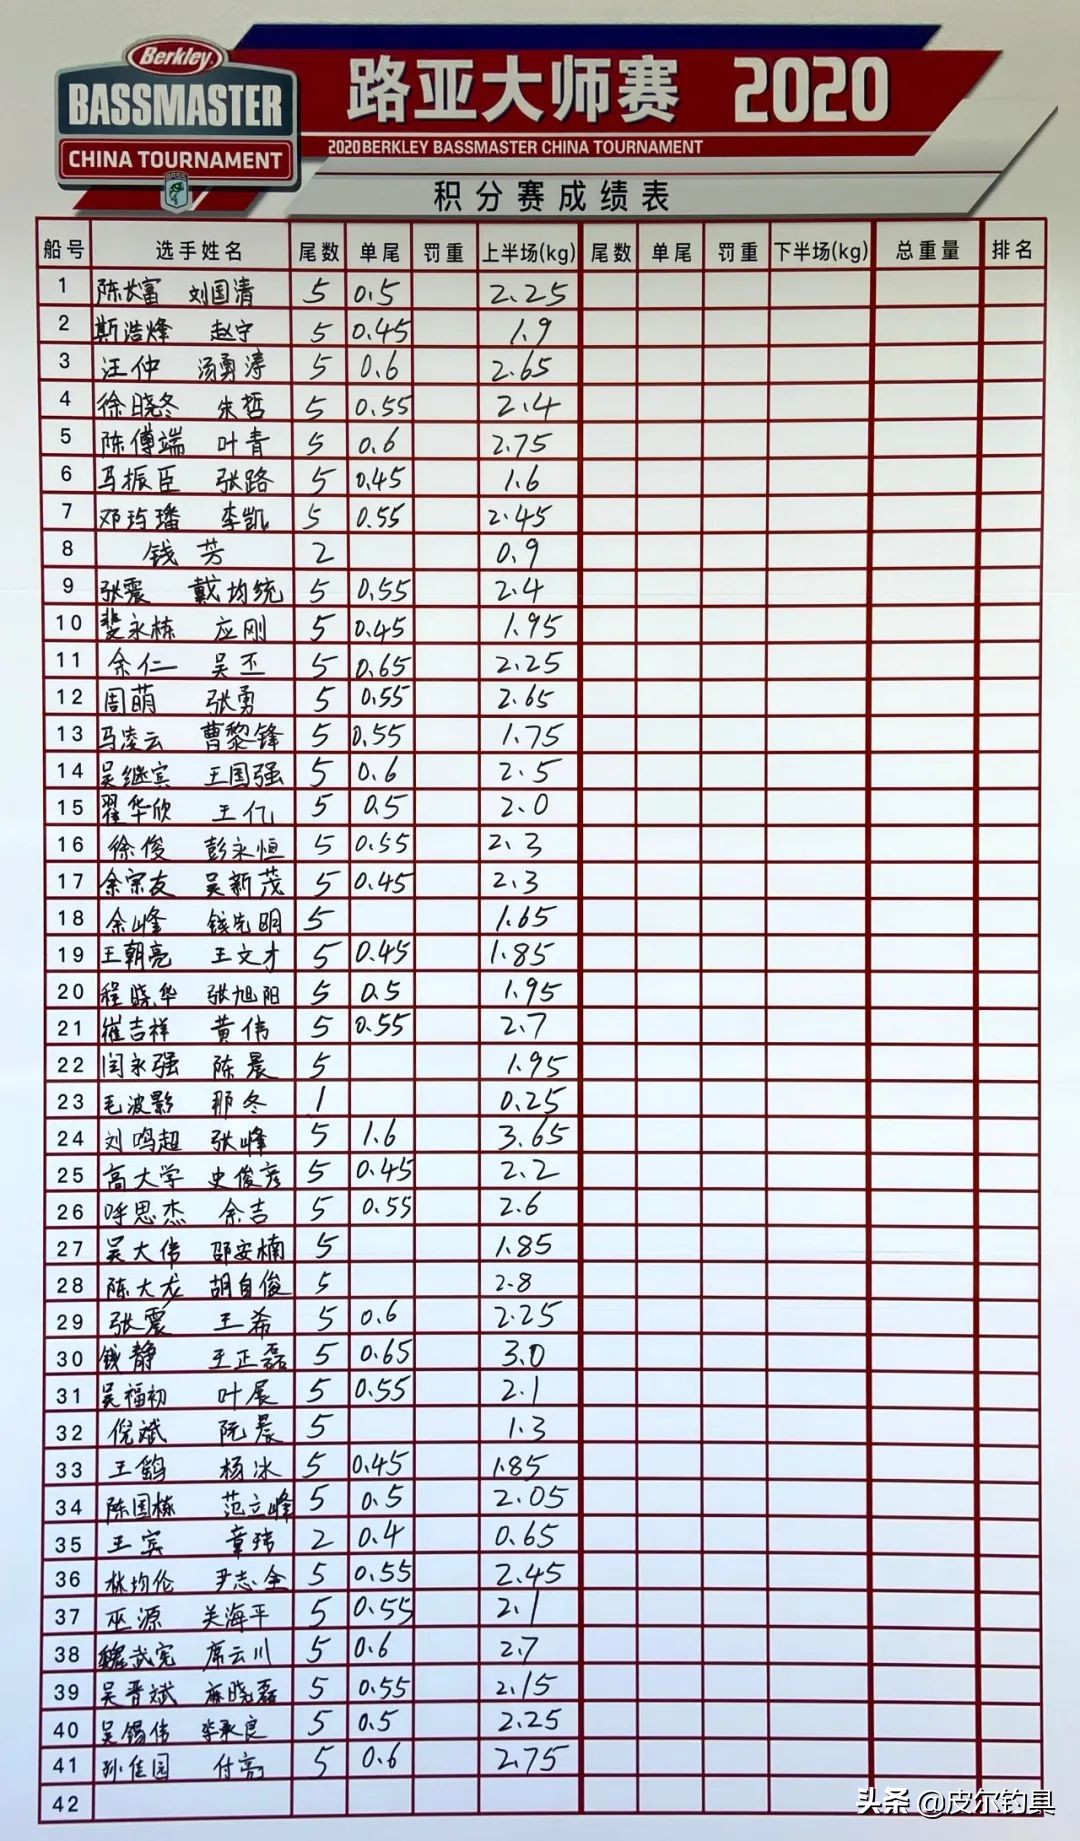 Berkley
BASSMASTER
CHINA TOURNAMENT
路亚大师赛 2020
2020 BERKLEY BASSMASTER CHINA TOURNAMENT
积分赛成绩表
船号 选手姓名 尾数 单尾 罚重 上半场(kg) 尾数 单尾 罚重 下半场(kg) 总重量 排名
1 陈大富 刘国清 5 0.5 2.25
2 斯浩烽 赵宁 5 0.45 1.9
3 汪仲 汤勇涛 5 0.6 2.65
4 徐晓冬 朱哲 5 0.55 2.4
5 陈傅端 叶青 5 0.6 2.75
6 马振臣 张路 5 0.45 1.6
7 邓玙璠 李凯 5 0.55 2.45
8 钱芳 2 0.9
9 张震 戴均统 5 0.55 2.4
10 娄永栋 应刚 5 0.45 1.95
11 余仁 吴丕 5 0.65 2.25
12 周萌 张勇 5 0.55 2.65
13 马凌云 曹黎锋 5 0.55 1.75
14 吴继宾 王国强 5 0.6 2.5
15 翟华欣 王亿 5 0.5 2.0
16 徐俊 彭永恒 5 0.55 2.3
17 余宗友 吴新茂 5 0.45 2.3
18 余峰 钱先明 5 1.65
19 王朝亮 王文才 5 0.45 1.85
20 程晓华 张旭阳 5 0.5 1.95
21 崔吉祥 黄伟 5 0.55 2.7
22 闫永强 陈晨 5 1.95
23 毛波影 那冬 1 0.25
24 刘鸣超 张峰 5 1.6 3.65
25 高大学 史俊彦 5 0.45 2.2
26 呼思杰 余吉 5 0.55 2.6
27 吴大伟 邵安楠 5 1.85
28 陈大龙 胡自俊 5 2.8
29 张震 王希 5 0.6 2.25
30 钱静 王正磊 5 0.65 3.0
31 吴福初 叶展 5 0.55 2.1
32 倪斌 阮晨 5 1.3
33 王鹞 杨冰 5 0.45 1.85
34 陈国栋 范立峰 5 0.5 2.05
35 王宾 章玮 2 0.4 0.65
36 林均伦 尹志全 5 0.55 2.45
37 巫源 关海平 5 0.55 2.1
38 魏武宪 席云川 5 0.6 2.7
39 吴晋斌 麻晓磊 5 0.55 2.15
40 吴锡伟 李承良 5 0.5 2.25
41 孙佳园 付亮 5 0.6 2.75
42
头条 @皮尔钓具